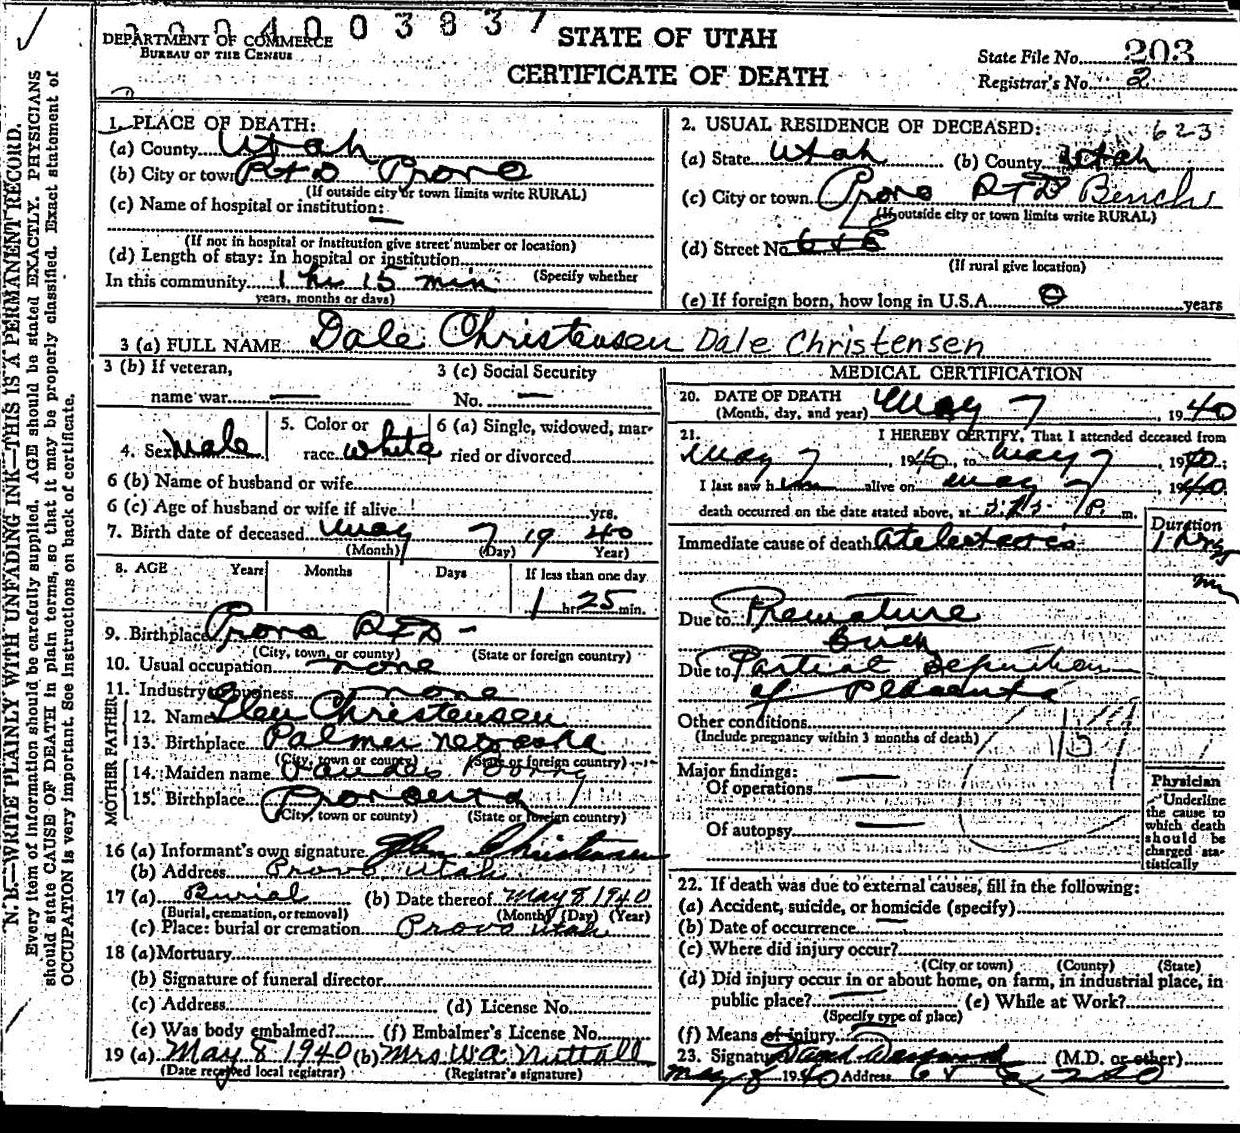 1004003837
DEPARTMENT OF COMMERCE
BUREAU OF THE CENSUS
STATE OF UTAH
CERTIFICATE OF DEATH
State File No. 203
Registrar's No. 2
N.B.—WRITE PLAINLY WITH UNFADING INK—THIS IS A PERMANENT RECORD.
Every item of information should be carefully supplied. AGE should be stated EXACTLY. PHYSICIANS
should state CAUSE OF DEATH in plain terms, so that it may be properly classified. Exact statement of
OCCUPATION is very important. See instructions on back of certificate.
1. PLACE OF DEATH:
(a) County Utah
(b) City or town Provo
(If outside city or town limits write RURAL)
(c) Name of hospital or institution: —
(If not in hospital or institution give street number or location)
(d) Length of stay: In hospital or institution
(Specify whether
In this community 1 hr 15 min
years, months or days)
2. USUAL RESIDENCE OF DECEASED: 623
(a) State Utah (b) County Utah
(c) City or town Provo Bench
(If outside city or town limits write RURAL)
(d) Street No.
(If rural give location)
(e) If foreign born, how long in U.S.A. 0 years
3 (a) FULL NAME Dale Christensen Dale Christensen
3 (b) If veteran,
name war —
3 (c) Social Security
No. —
4. Sex Male
5. Color or
race White
6 (a) Single, widowed, mar-
ried or divorced
6 (b) Name of husband or wife
6 (c) Age of husband or wife if alive yrs.
7. Birth date of deceased May 7 1940
(Month) (Day) Year)
8. AGE Years Months Days If less than one day
1 hr. 25 min.
9. Birthplace Provo RFD —
(City, town, or county) (State or foreign country)
10. Usual occupation none
11. Industry or business none
FATHER
12. Name Glen Christensen
13. Birthplace Palmer Nebraska
(City, town or county) (State or foreign country)
MOTHER
14. Maiden name
15. Birthplace Provo Utah
(City, town or county) (State or foreign country)
16 (a) Informant's own signature Glen Christensen
(b) Address Provo Utah
17 (a) Burial (b) Date thereof May 8 1940
(Burial, cremation, or removal) (Month) (Day) (Year)
(c) Place: burial or cremation Provo Utah
18 (a) Mortuary
(b) Signature of funeral director
(c) Address (d) License No.
(e) Was body embalmed? (f) Embalmer's License No.
19 (a) May 8 1940 (b) Mrs W A Nuttall
(Date received local registrar) (Registrar's signature)
MEDICAL CERTIFICATION
20. DATE OF DEATH
(Month, day, and year) May 7, 1940
21. I HEREBY CERTIFY, That I attended deceased from
May 7, 1940, to May 7, 1940;
I last saw him alive on May 7, 1940.
death occurred on the date stated above, at P. m.
Duration
Immediate cause of death Atelectasis
1 hr 25
min
Due to Premature
Birth
Due to Partial Separation
of Placenta
Other conditions
(Include pregnancy within 3 months of death)
159
Major findings:
Of operations —
Of autopsy —
Physician
Underline
the cause to
which death
should be
charged sta-
tistically
22. If death was due to external causes, fill in the following:
(a) Accident, suicide, or homicide (specify)
(b) Date of occurrence —
(c) Where did injury occur?
(City or town) (County) (State)
(d) Did injury occur in or about home, on farm, in industrial place, in
public place? (e) While at Work?
(Specify type of place)
(f) Means of injury
23. Signature (M.D. or other)
May 8 1940 Address